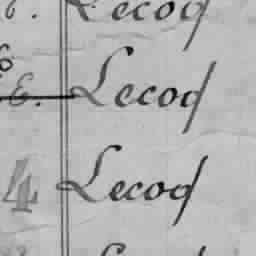 6. Lecoq
6. Lecoq
4 Lecoq